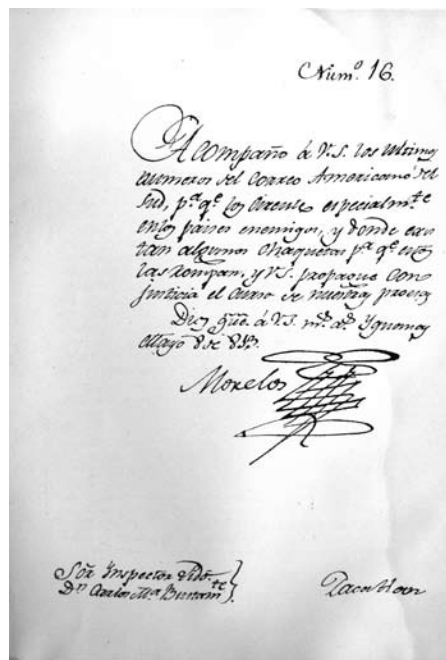 Núm.º 16.
Acompaño á V.S. los ultimos
numeros del Correo Americano del
Sud, p.ª q.e los circule especialm.te
en los paises enemigos, y donde exis
tan algunos chaquetas p.ª q.e
las rompan, y V.S. propague con
justicia el curso de nuestra
Dios gũe. á V.S. m.s a.s
Mayo 8 de 813.
Morelos
Sõr Inspector
Dn Carlos M.ª Bustam.te
Zacatlan